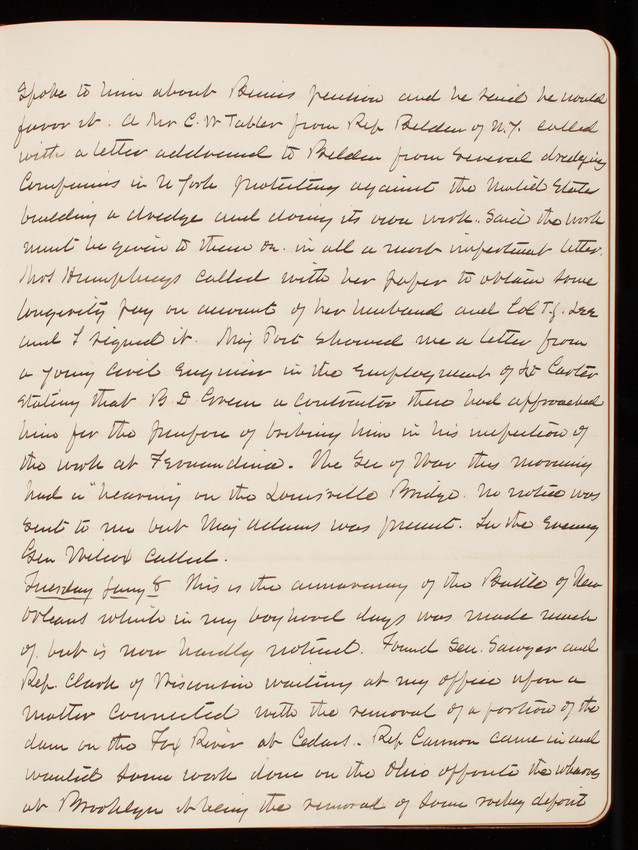 Spoke to him about Binnis pension and he said he would
favor it. A Mr C. W Tabler from Rep Belden of N.Y. called
with a letter addressed to Belden from several dredging
Companies in N York protesting against the United States
building a dredge and doing its own work. Said the work
must be given to them &c. in all a most impertinent letter.
Mrs Humphreys called with her paper to obtain some
longevity pay on account of her husband and Col T.J. Lee
and I signed it. Maj Post showed me a letter from
a young Civil Engineer in the employment of Lt Carter
stating that B. D Green a contractor there had approached
him for the purpose of bribing him in his inspection of
the work at Fernandina. The Sec of War this morning
had a "hearing" on the Louisville Bridge. No notice was
sent to me but Maj Adams was present. In the Evening
Gen Wilcox called.
Tuesday Jany 8 This is the anniversary of the Battle of New
Orleans which in my boyhood days was made much
of but is now hardly noticed. Found Sen. Sawyer and
Rep. Clark of Wisconsin waiting at my office upon a
matter connected with the removal of a portion of the
dam on the Fox River at Cedars. Rep Cannon came in and
wanted some work done on the Ohio opposite the wharves
at Brooklyn it being the removal of some rocky deposit